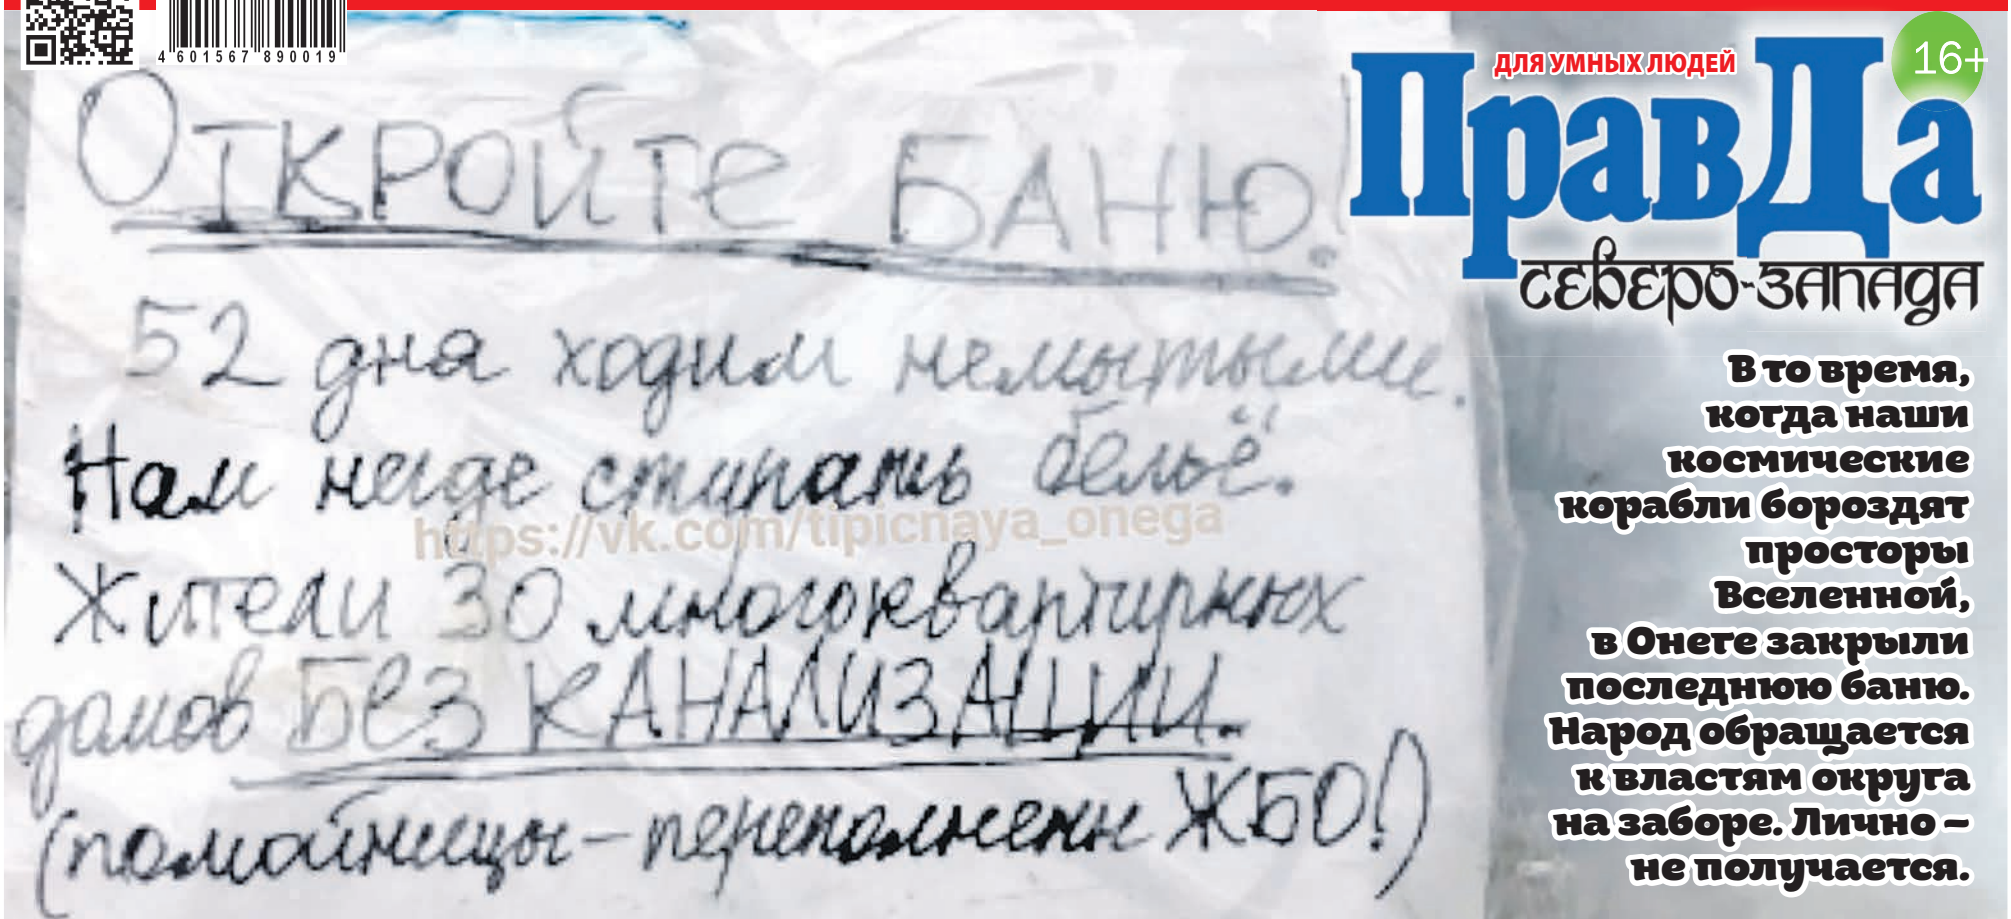 4 601567 890019
ДЛЯ УМНЫХ ЛЮДЕЙ
16+
ПравДа
северо-запада
Откройте Баню!
52 дня ходим немытыми.
Нам негде стирать бельё.
https://vk.com/tipicnaya_onega
Жители 30 многоквартирных
домов Без КАНАЛИЗАЦИИ.
(помойницы – переполнены ЖБО!)
В то время,
когда наши
космические
корабли бороздят
просторы
Вселенной,
в Онеге закрыли
последнюю баню.
Народ обращается
к властям округа
на заборе. Лично –
не получается.